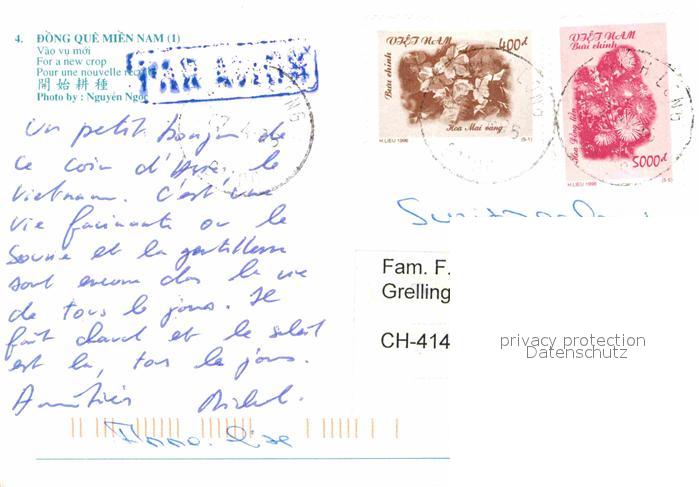 4. ĐỒNG QUÊ MIỀN NAM (1)
Vào vụ mới
For a new crop
Pour une nouvelle
開始耕種
Photo by : Nguyễn Ngọc
PAR AVION
VIỆT NAM
Bưu chính
400đ
Hoa Mai vàng
H.LIEU 1996
(5-1)
VIỆT NAM
Bưu chính
5000đ
H.LIEU 1996
Un petit bonjour de
ce coin d'Asie, le
Vietnam. C'est une
vie fascinante ou le
Sourire et la gentillesse
sont encore dans la vie
de tous les jours. Il
fait chaud et le soleil
est là, tous les jours.
Amitiés Michel.
Anne-Lise
Fam. F.
Grelling
CH-414
privacy protection
Datenschutz